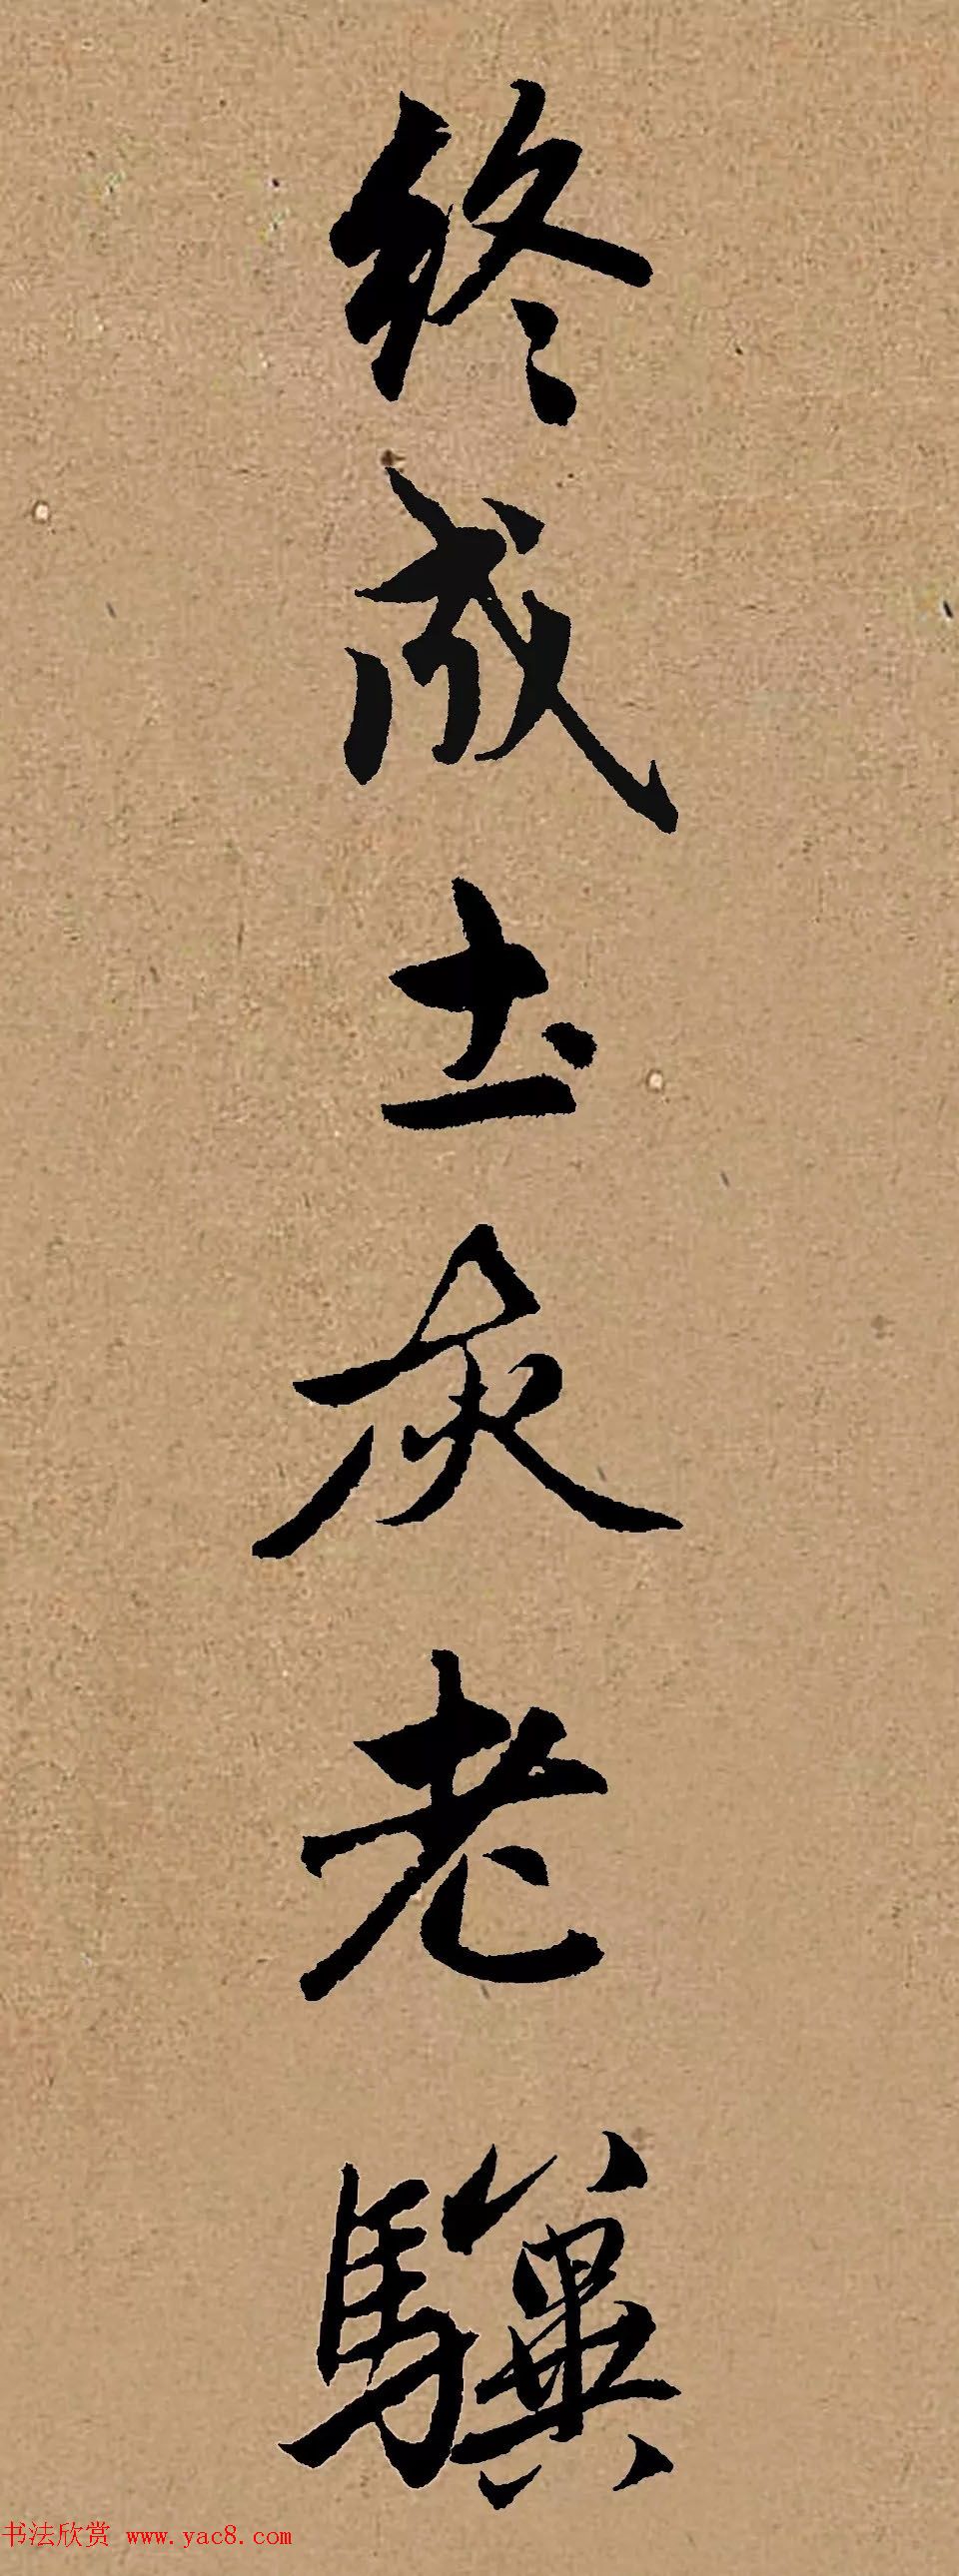 终成土灰老驥
书法欣赏 www.yac8.com